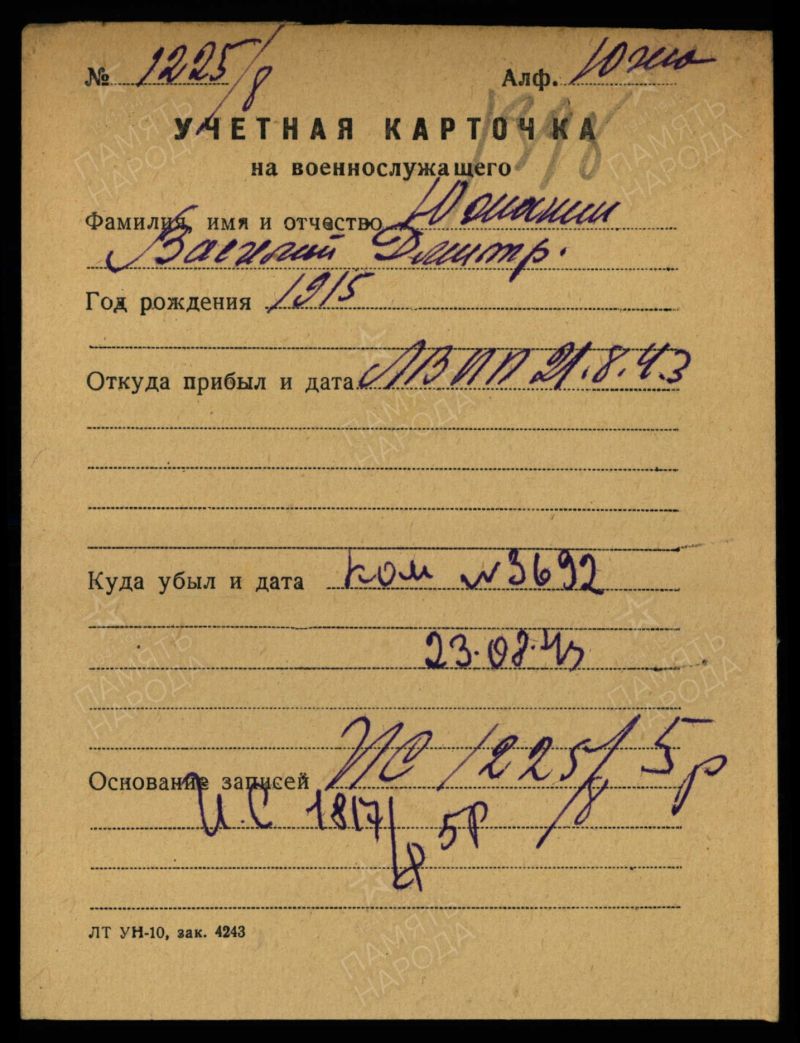 № 1225/8 Алф.
УЧЕТНАЯ КАРТОЧКА
на военнослужащего
Фамилия, имя и отчество
Василий Дмитр.
Год рождения 1915
Откуда прибыл и дата ЛВПП 21.8.43
Куда убыл и дата ком №3692
23.08.43
Основание записей ИС 1225/8 5р
И.С 1817/8 5Р
ЛТ УН-10, зак. 4243
ПАМЯТЬ НАРОДА